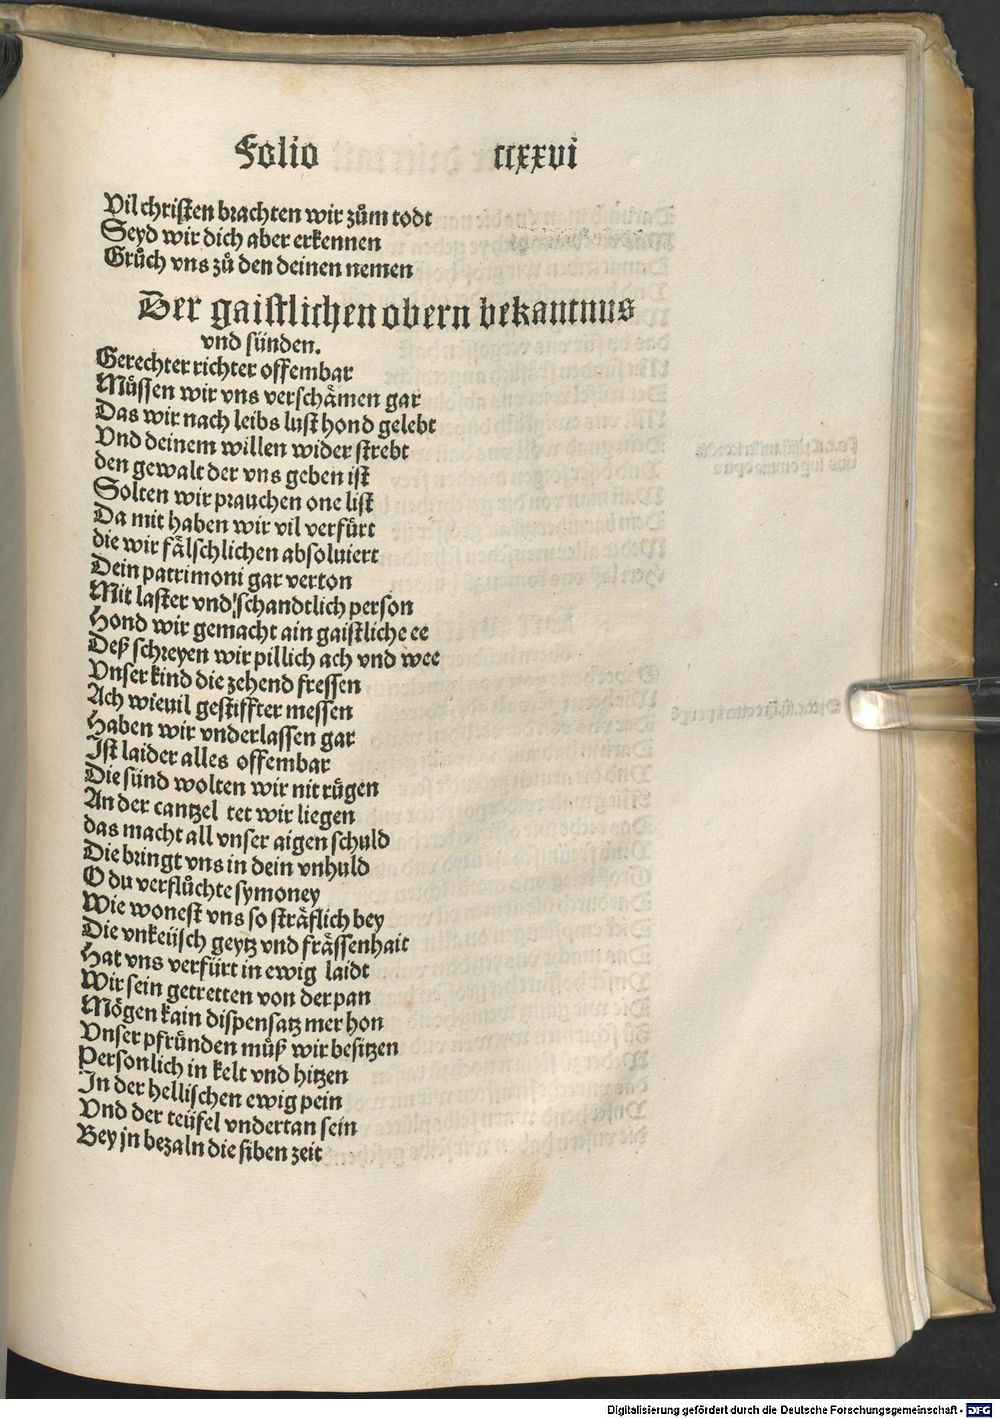 Folio ccxxvi
Vil christen brachten wir zům todt
Seyd wir dich aber erkennen
Grůch vns zů den deinen nemen
Der gaistlichen obern bekantnus
vnd sünden.
Gerechter richter offembar
Müssen wir vns verschämen gar
Das wir nach leibs lust hond gelebt
Vnd deinem willen wider strebt
den gewalt der vns geben ist
Solten wir prauchen one list
Da mit haben wir vil verfürt
die wir fälschlichen absoluiert
Dein patrimoni gar verton
Mit laster vnd schandtlich person
Hond wir gemacht ain gaistliche ee
Deß schreyen wir pillich ach vnd wee
Vnser kind die zehend fressen
Ach wieuil gestiffter messen
Haben wir vnderlassen gar
Ist laider alles offembar
Die sünd wolten wir nit rügen
An der cantzel tet wir liegen
das macht all vnser aigen schuld
Die bringt vns in dein vnhuld
O du verflůchte symoney
Wie wonest vns so sträflich bey
Die vnkeüsch geytz vnd frässenhait
Hat vns verfürt in ewig laidt
Wir sein getretten von der pan
Mögen kain dispensatz mer hon
Vnser pfründen müß wir besitzen
Personlich in kelt vnd hitzen
In der hellischen ewig pein
Vnd der teüfel vndertan sein
Bey jn bezaln die siben zeit
Digitalisierung gefördert durch die Deutsche Forschungsgemeinschaft - DFG